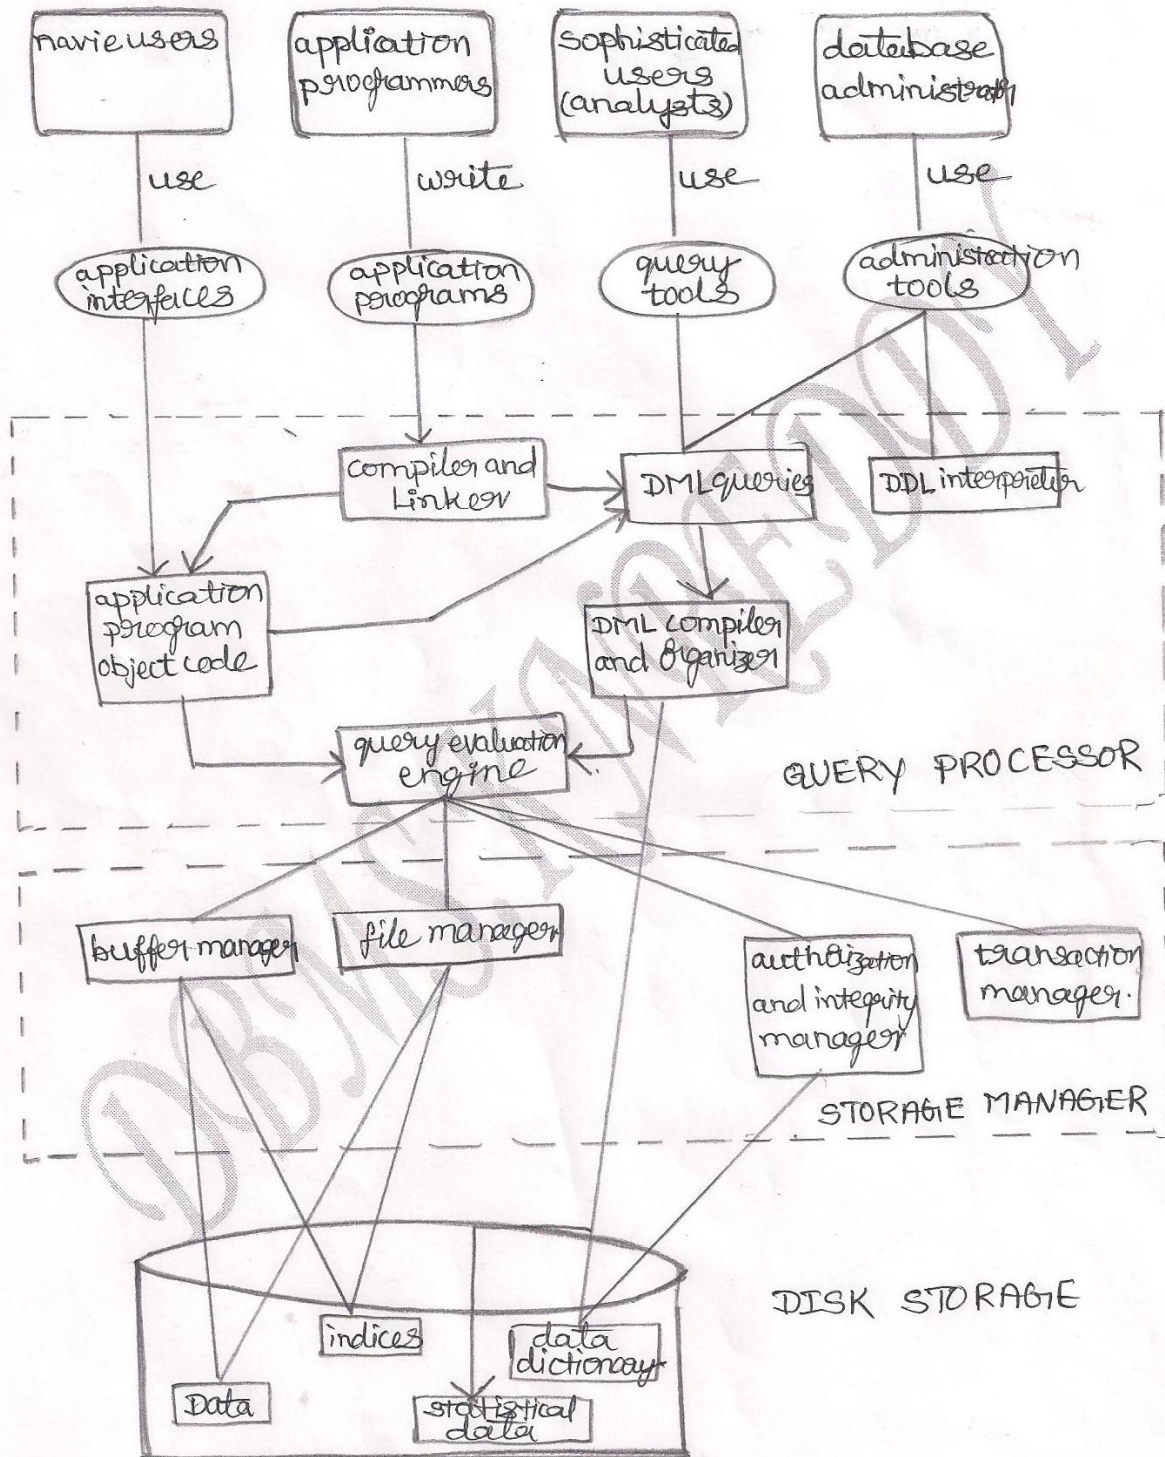 navie users
application
programmers
sophisticated
users
(analysts)
database
administrator
use
write
use
use
application
interfaces
application
programs
query
tools
administration
tools
compiler and
Linker
DML queries
DDL interpreter
application
program
object code
DML compiler
and Organizer
query evaluation
engine
QUERY PROCESSOR
buffer manager
file manager
authorization
and integrity
manager
transaction
manager.
STORAGE MANAGER
DISK STORAGE
indices
data
dictionary
Data
statistical
data